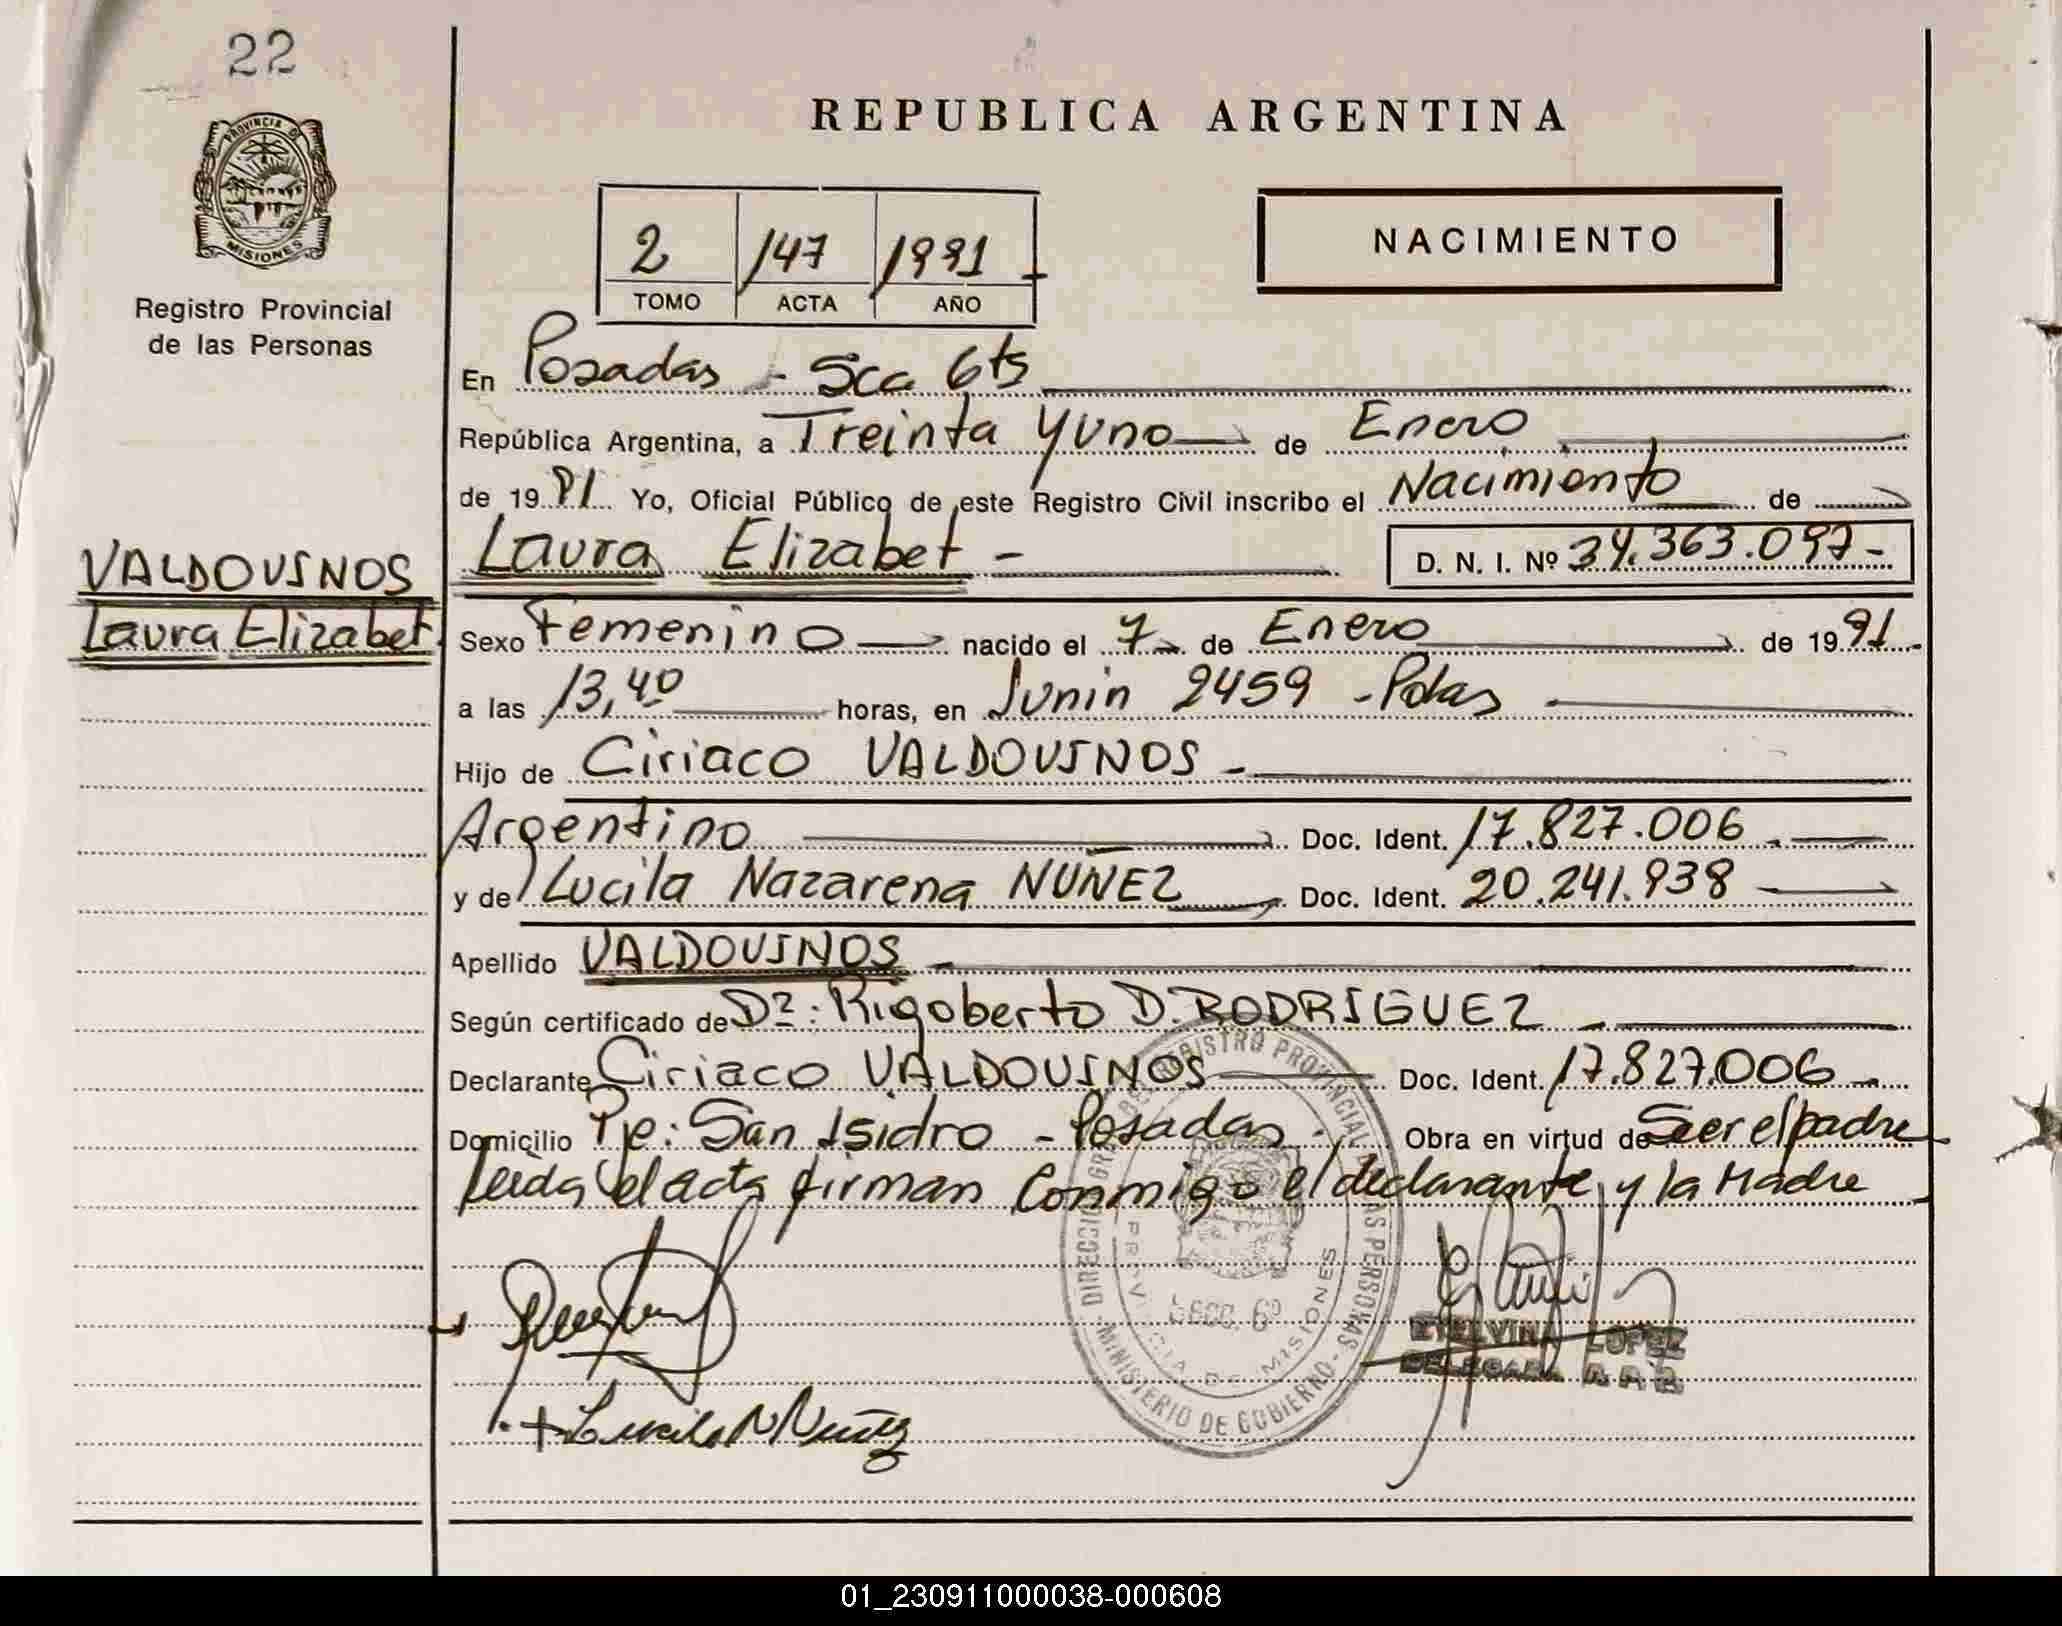 22
REPUBLICA ARGENTINA
PROVINCIA DE
MISIONES
Registro Provincial
de las Personas
2 147 1991
TOMO ACTA AÑO
NACIMIENTO
En Posadas - Scc 6ts
República Argentina, a Treinta Yuno de Enero
de 1991 Yo, Oficial Público de este Registro Civil inscribo el Nacimiento de
VALDOVINOS
Laura Elizabet
Laura Elizabet - D. N. I. Nº 34.363.097-
Sexo Femenino nacido el 7 de Enero de 1991.
a las 13,40 horas, en Junin 2459 - Pdas
Hijo de Ciriaco VALDOVINOS -
Argentino Doc. Ident. 17.827.006
y de Lucila Nazarena NUÑEZ Doc. Ident. 20.241.938
Apellido VALDOVINOS
Según certificado de Dr: Rigoberto D. RODRIGUEZ
Declarante Ciriaco VALDOVINOS Doc. Ident. 17.827.006
Domicilio Pje: San Isidro - Posadas - Obra en virtud de Ser el padre
Leida el acta firman Conmigo el declarante y la Madre
MINISTERIO DE GOBIERNO
PROVINCIA DE MISIONES
SECC. 6º
ETELVINA LOPEZ
Lucila N Nuñez
01_230911000038-000608